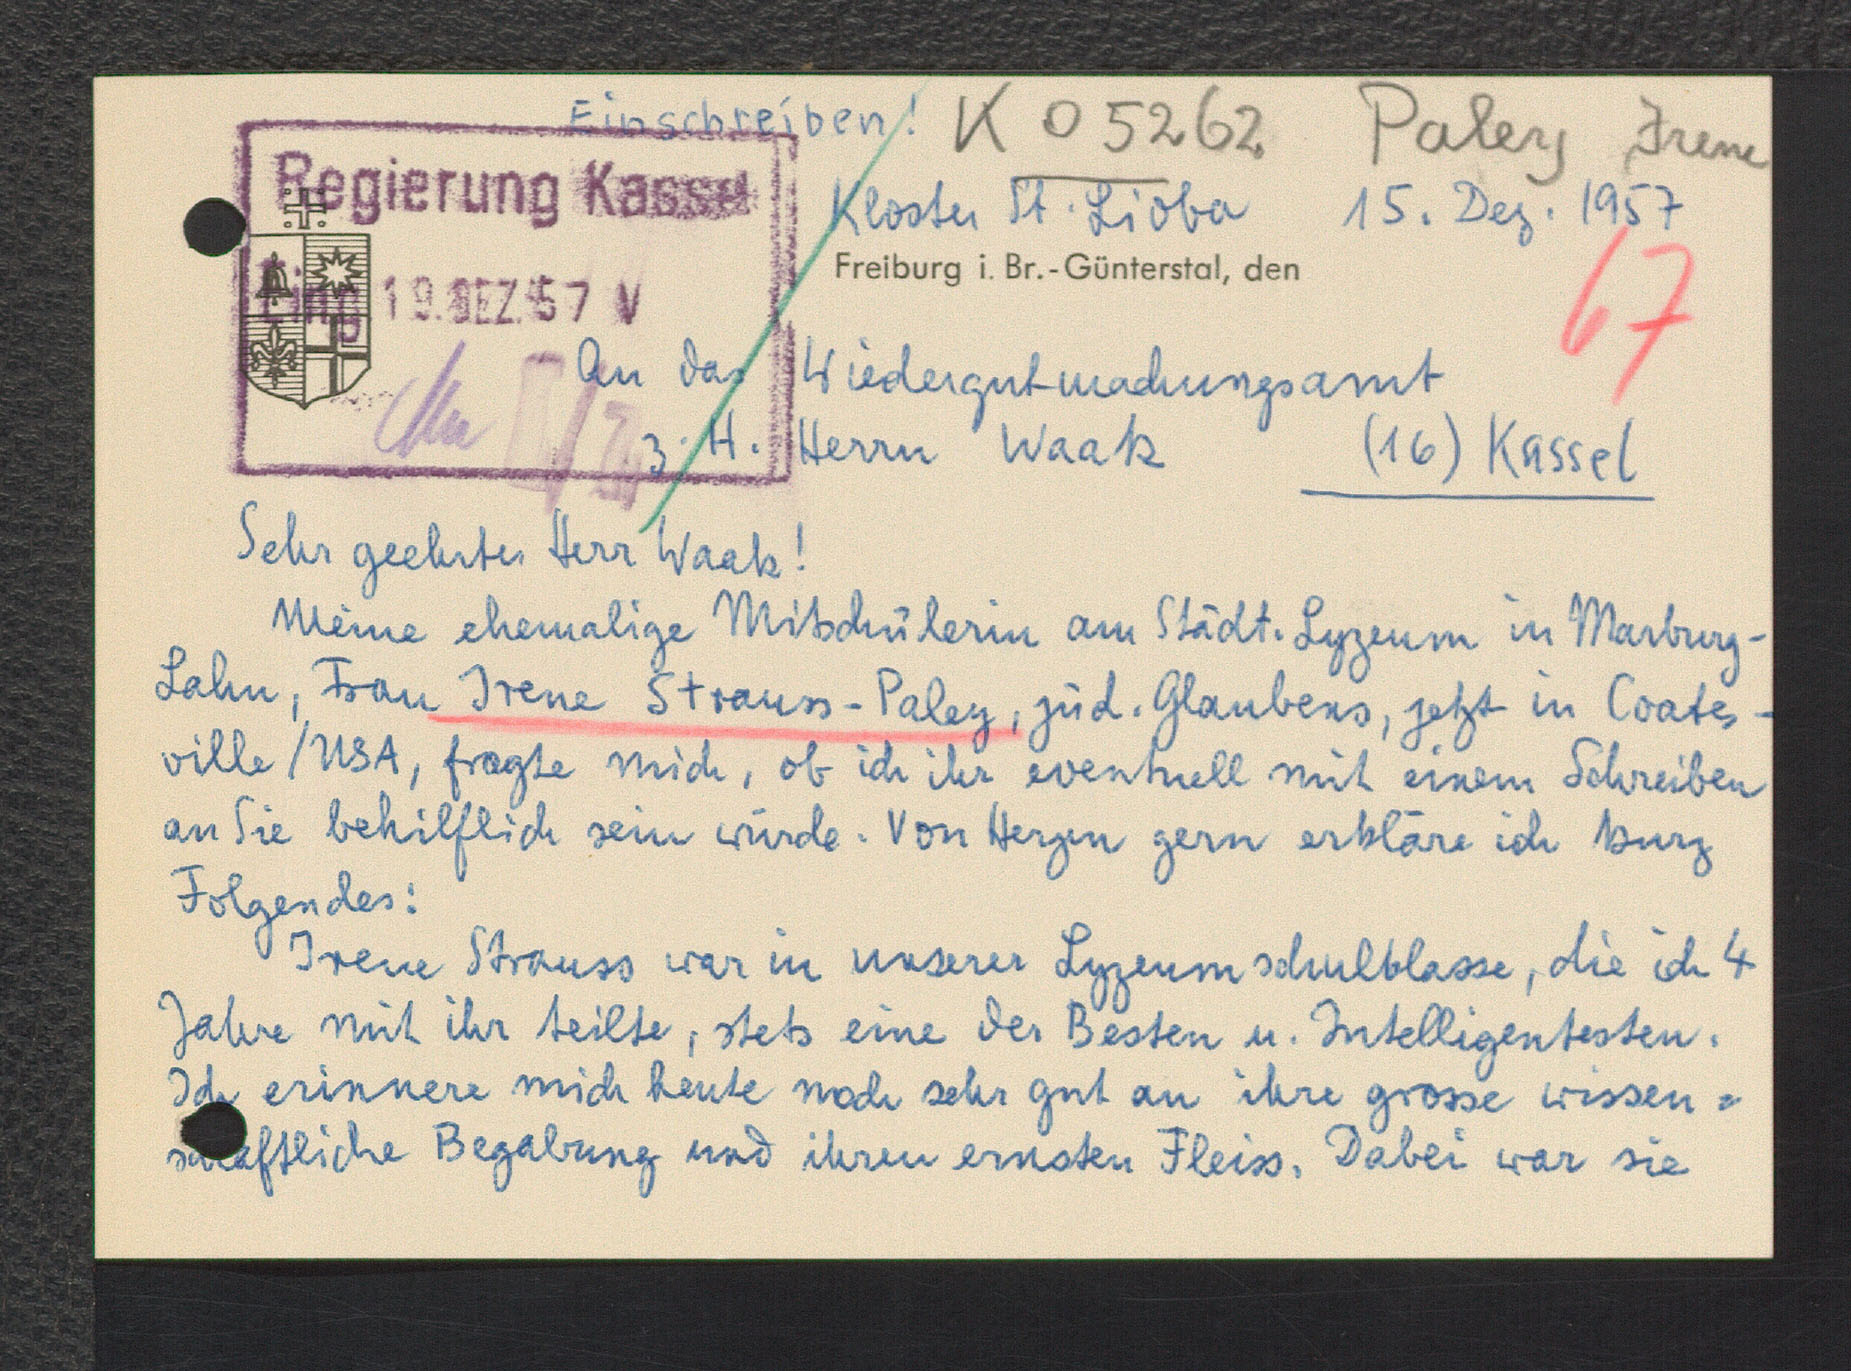 Einschreiben! K 05262 Paley Irene
Regierung Kassel
Eing 19. DEZ. 57 V
Kloster St. Lioba 15. Dez. 1957
Freiburg i. Br.-Günterstal, den
67
An das Wiedergutmachungsamt
z. H. Herrn Waak (16) Kassel
Sehr geehrter Herr Waak!
Meine ehemalige Mitschülerin am Städt. Lyzeum in Marburg-
Lahn, Frau Irene Strauss-Paley, jüd. Glaubens, jetzt in Coates-
ville/USA, fragte mich, ob ich ihr eventuell mit einem Schreiben
an Sie behilflich sein würde. Von Herzen gern erkläre ich kurz
Folgendes:
Irene Strauss war in unserer Lyzeumschulklasse, die ich 4
Jahre mit ihr teilte, stets eine der Besten u. Intelligentesten.
Ich erinnere mich heute noch sehr gut an ihre grosse wissen=
schaftliche Begabung und ihren ernsten Fleiss. Dabei war sie